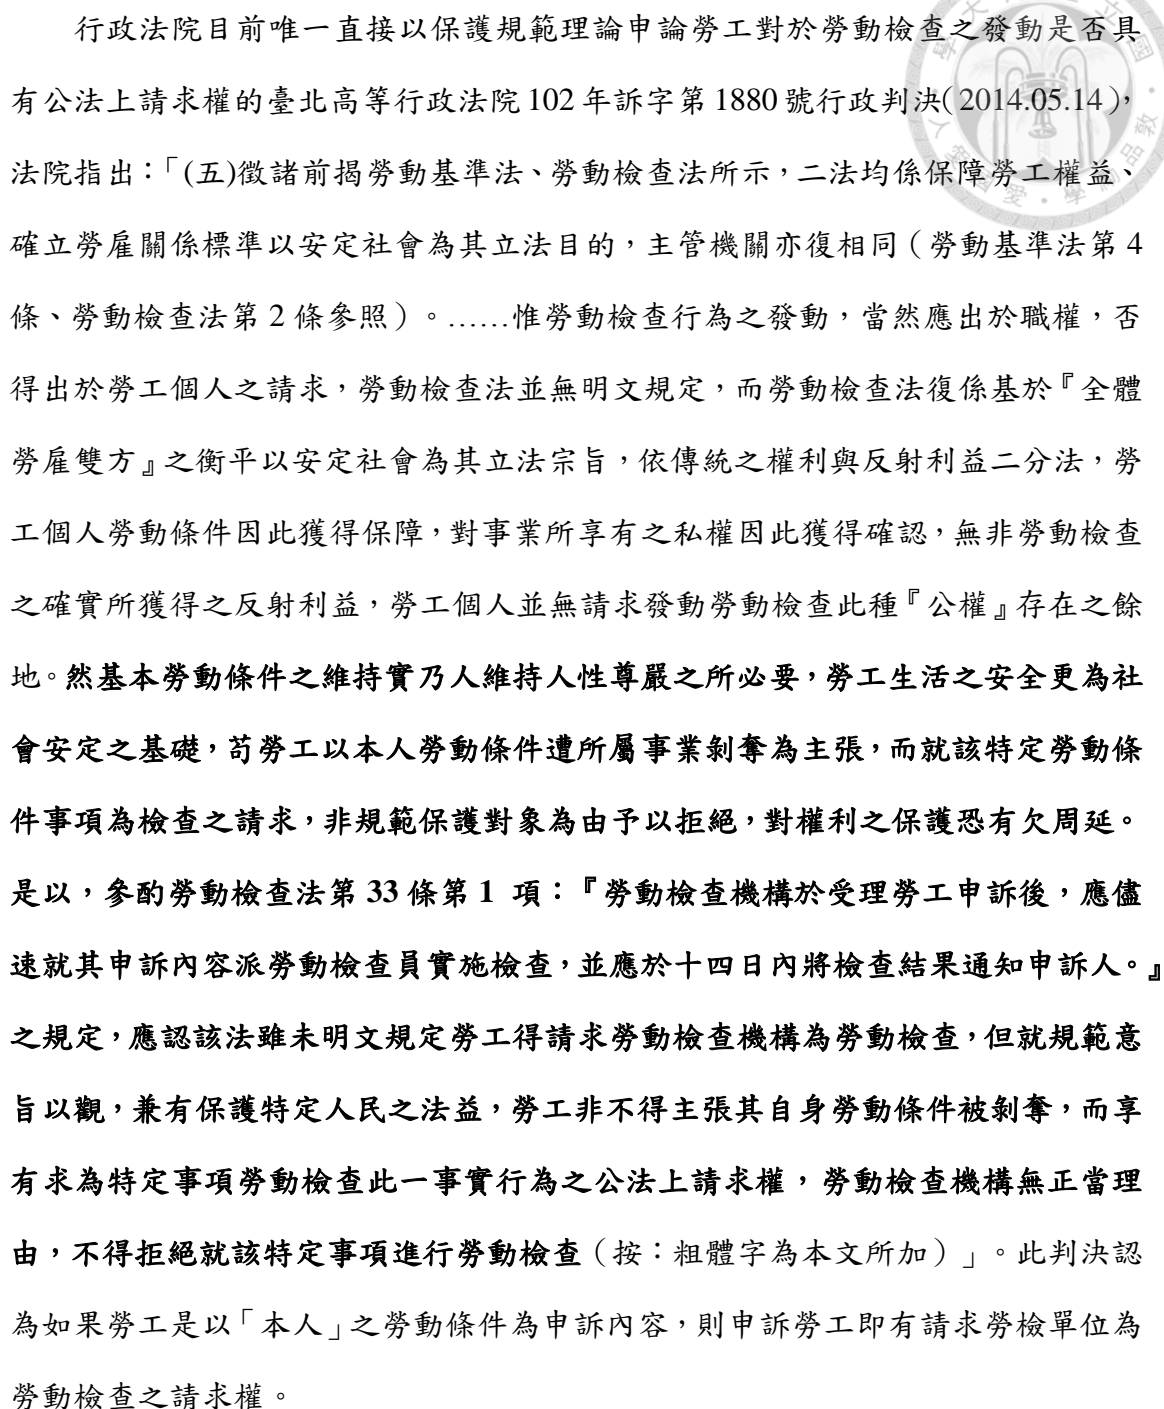 行政法院目前唯一直接以保護規範理論申論勞工對於勞動檢查之發動是否具
有公法上請求權的臺北高等行政法院 102 年訴字第 1880 號行政判決(2014.05.14)，
法院指出：「(五)徵諸前揭勞動基準法、勞動檢查法所示，二法均係保障勞工權益、
確立勞雇關係標準以安定社會為其立法目的，主管機關亦復相同（勞動基準法第 4
條、勞動檢查法第 2 條參照）。……惟勞動檢查行為之發動，當然應出於職權，否
得出於勞工個人之請求，勞動檢查法並無明文規定，而勞動檢查法復係基於『全體
勞雇雙方』之衡平以安定社會為其立法宗旨，依傳統之權利與反射利益二分法，勞
工個人勞動條件因此獲得保障，對事業所享有之私權因此獲得確認，無非勞動檢查
之確實所獲得之反射利益，勞工個人並無請求發動勞動檢查此種『公權』存在之餘
地。然基本勞動條件之維持實乃人維持人性尊嚴之所必要，勞工生活之安全更為社
會安定之基礎，苟勞工以本人勞動條件遭所屬事業剝奪為主張，而就該特定勞動條
件事項為檢查之請求，非規範保護對象為由予以拒絕，對權利之保護恐有欠周延。
是以，參酌勞動檢查法第 33 條第 1 項：『勞動檢查機構於受理勞工申訴後，應儘
速就其申訴內容派勞動檢查員實施檢查，並應於十四日內將檢查結果通知申訴人。』
之規定，應認該法雖未明文規定勞工得請求勞動檢查機構為勞動檢查，但就規範意
旨以觀，兼有保護特定人民之法益，勞工非不得主張其自身勞動條件被剝奪，而享
有求為特定事項勞動檢查此一事實行為之公法上請求權，勞動檢查機構無正當理
由，不得拒絕就該特定事項進行勞動檢查（按：粗體字為本文所加）」。此判決認
為如果勞工是以「本人」之勞動條件為申訴內容，則申訴勞工即有請求勞檢單位為
勞動檢查之請求權。